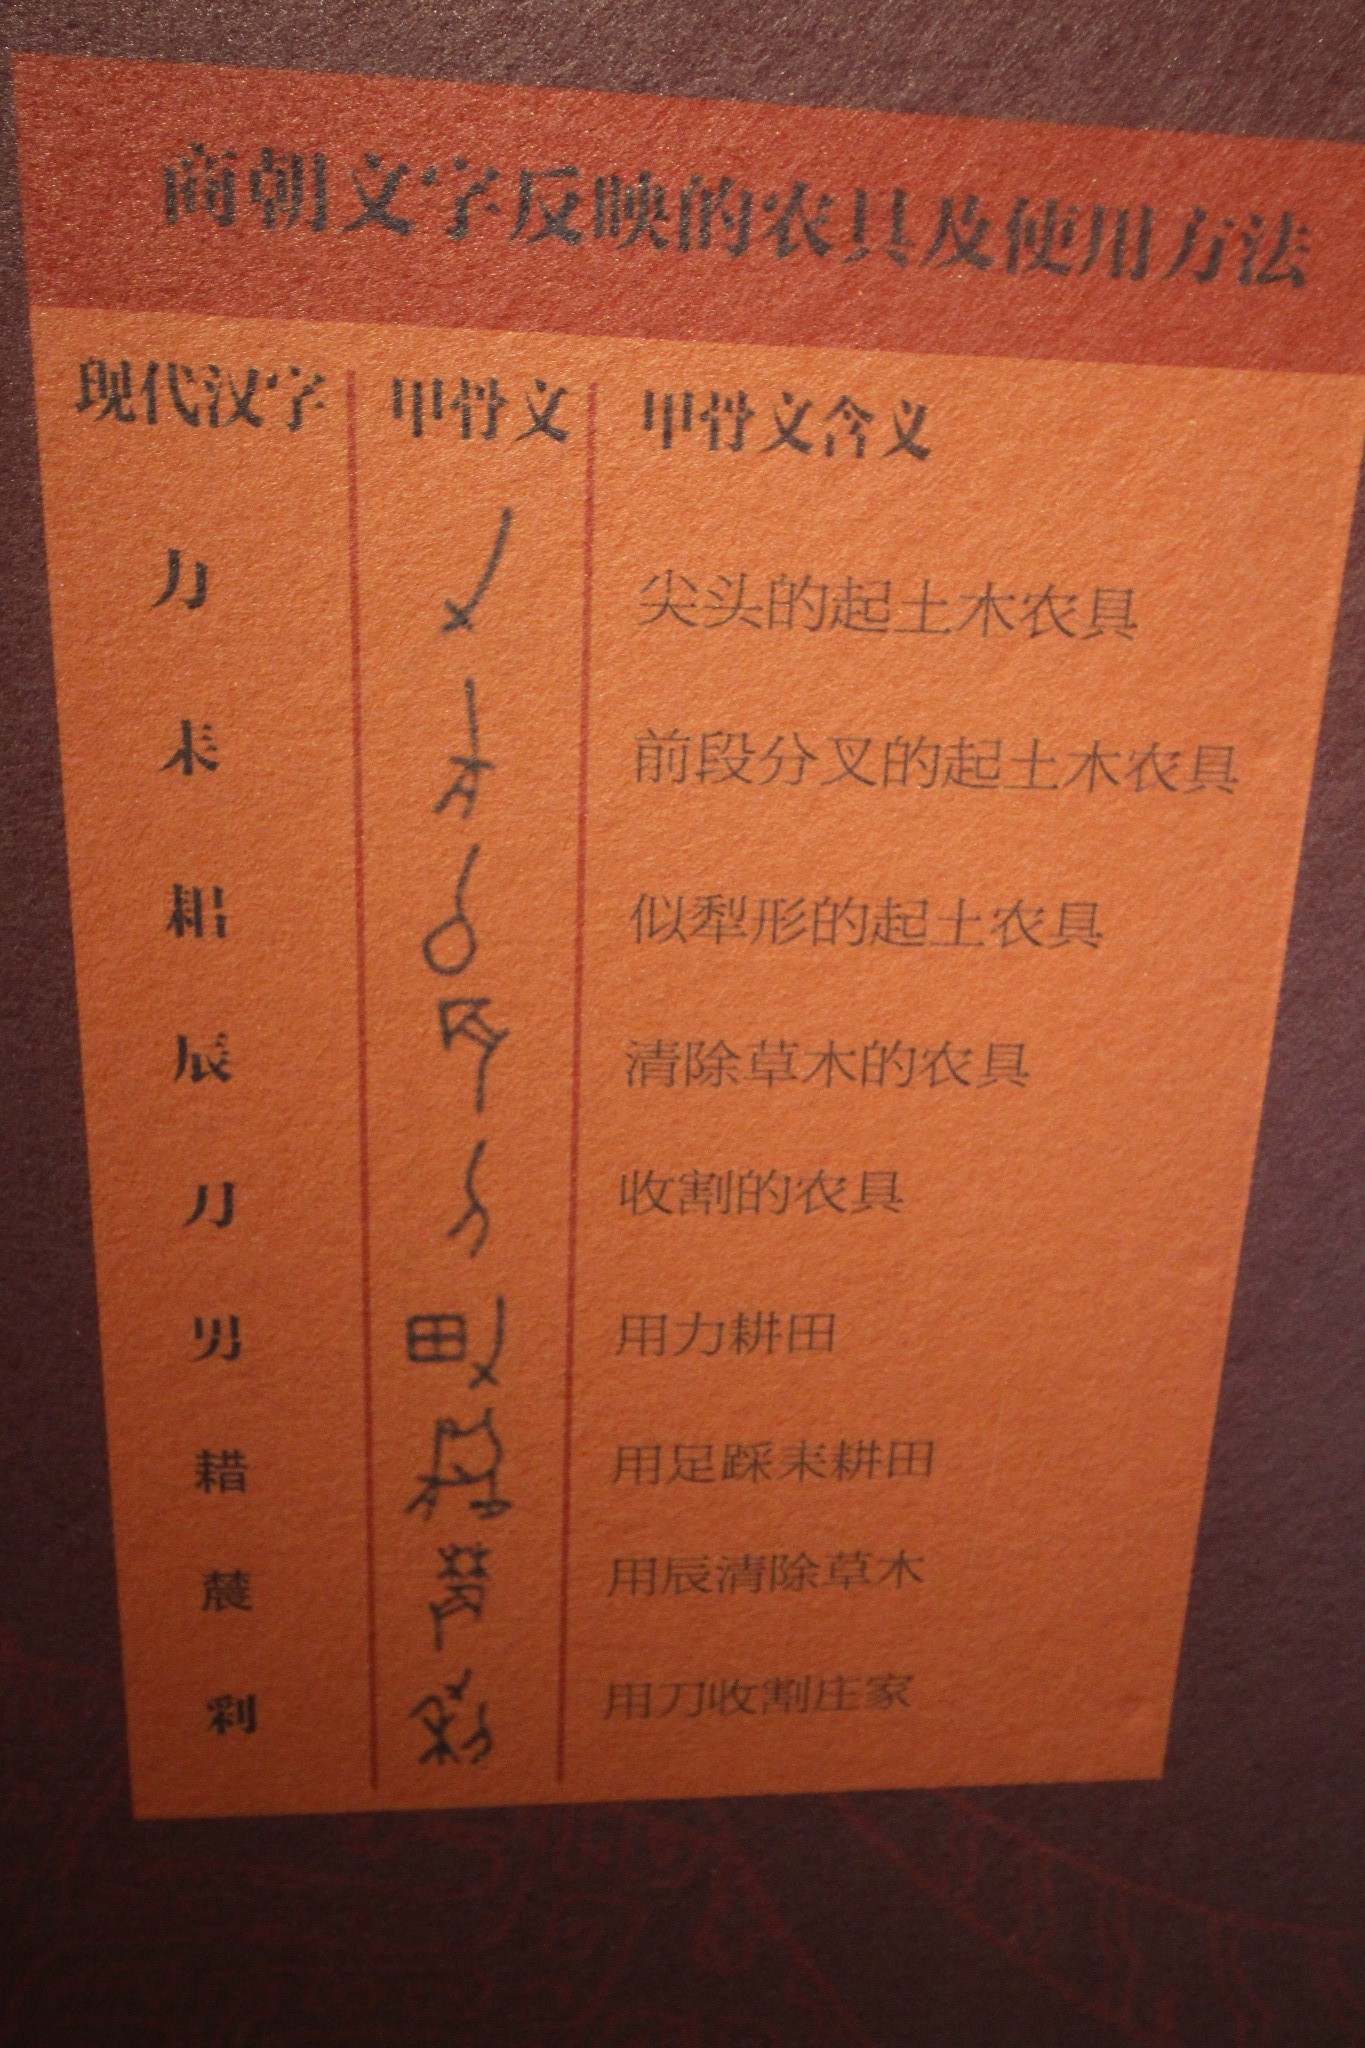 商朝文字反映的农具及使用方法
现代汉字 甲骨文 甲骨文含义
力 尖头的起土木农具
耒 前段分叉的起土木农具
耜 似犁形的起土农具
辰 清除草木的农具
刀 收割的农具
男 用力耕田
耤 用足踩耒耕田
蓐 用辰清除草木
用刀收割庄家